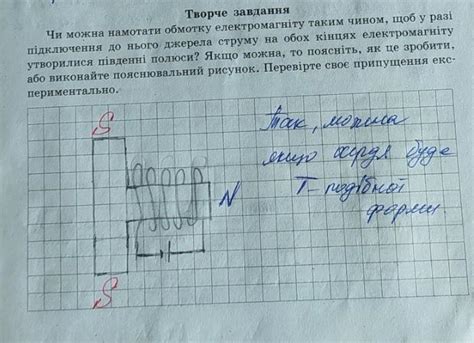 Творче завдання
Чи можна намотати обмотку електромагніту таким чином, щоб у разі
підключення до нього джерела струму на обох кінцях електромагніту
утворилися південні полюси? Якщо можна, то поясніть, як це зробити,
або виконайте пояснювальний рисунок. Перевірте своє припущення екс-
периментально.
S
Так, можна
якщо осердя буде
N
Т-подібної
форми.
S